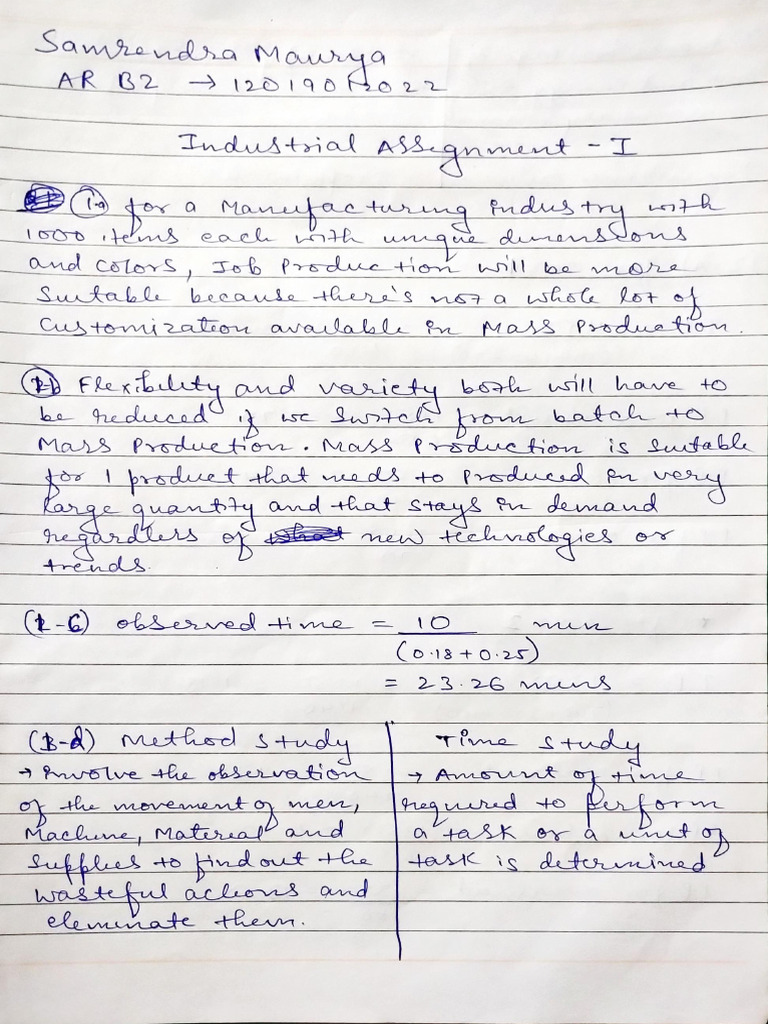 Samrendra Maurya
AR B2 → 12019012022
Industrial Assignment - I
1-a for a Manufacturing industry with
1000 items each with unique dimensions
and colors, Job Production will be more
Suitable because there's not a whole lot of
Customization available in Mass Production.
1-b Flexibility and variety both will have to
be reduced if we switch from batch to
Mass Production. Mass Production is suitable
for 1 product that needs to produced in very
large quantity and that stays in demand
regardless of new technologies or
trends.
(1-c) observed time = 10 min
(0.18 + 0.25)
= 23.26 mins
(1-d) Method study
→ Involve the observation
of the movement of men,
Machine, Material and
Supplies to find out the
wasteful actions and
eliminate them.
Time study
→ Amount of time
required to perform
a task or a unit of
task is determined